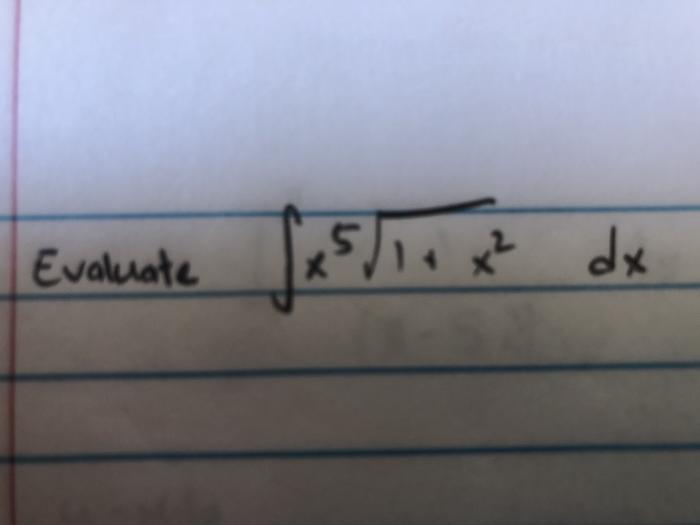 Evaluate ∫x⁵√1+ x² dx